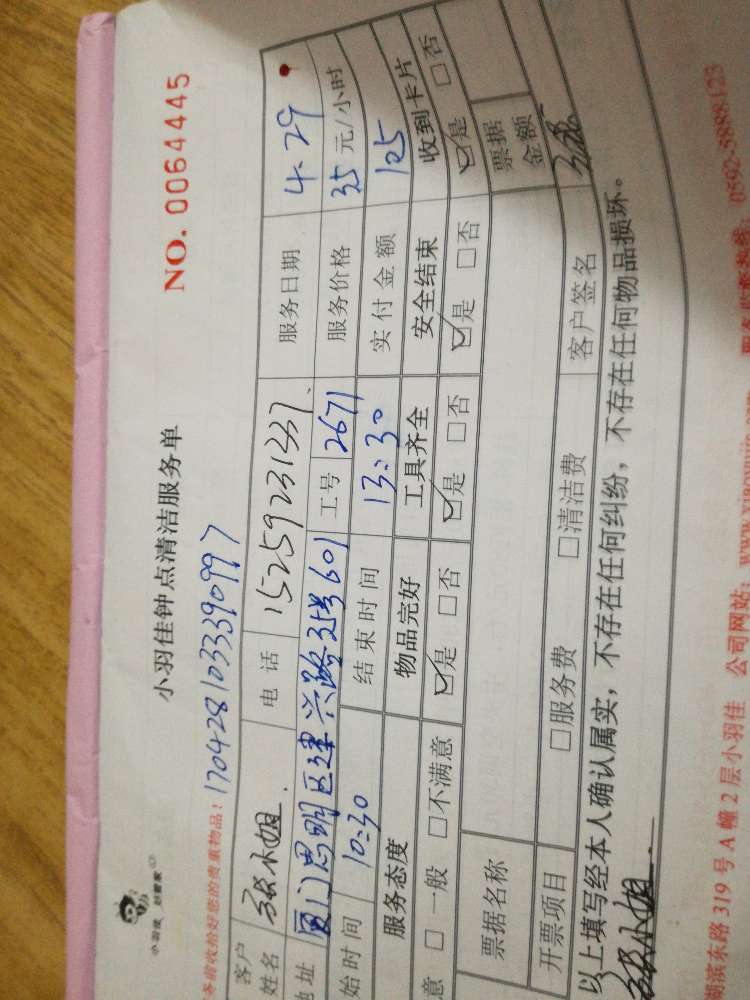 小羽佳 好管家
小羽佳钟点清洁服务单
NO. 0064445
务前收拾好您的贵重物品! 170428103390997
客户姓名 张小姐. 电话 15259231337. 服务日期 4.29
地址 厦门思明区建兴路35号601 工号 2671 服务价格 35 元/小时
始时间 10:30 结束时间 13:30 实付金额 105
服务态度 物品完好 工具齐全 安全结束 收到卡片
意 □ 一般 □不满意 ☑是 □否 ☑是 □否 ☑是 □否 ☑是 □否
票据名称 票据金额
开票项目 □服务费 □清洁费 客户签名
以上填写经本人确认属实，不存在任何纠纷，不存在任何物品损坏。
张小姐.
湖滨东路 319 号 A 幢 2 层小羽佳 公司网站: 0592-5888123